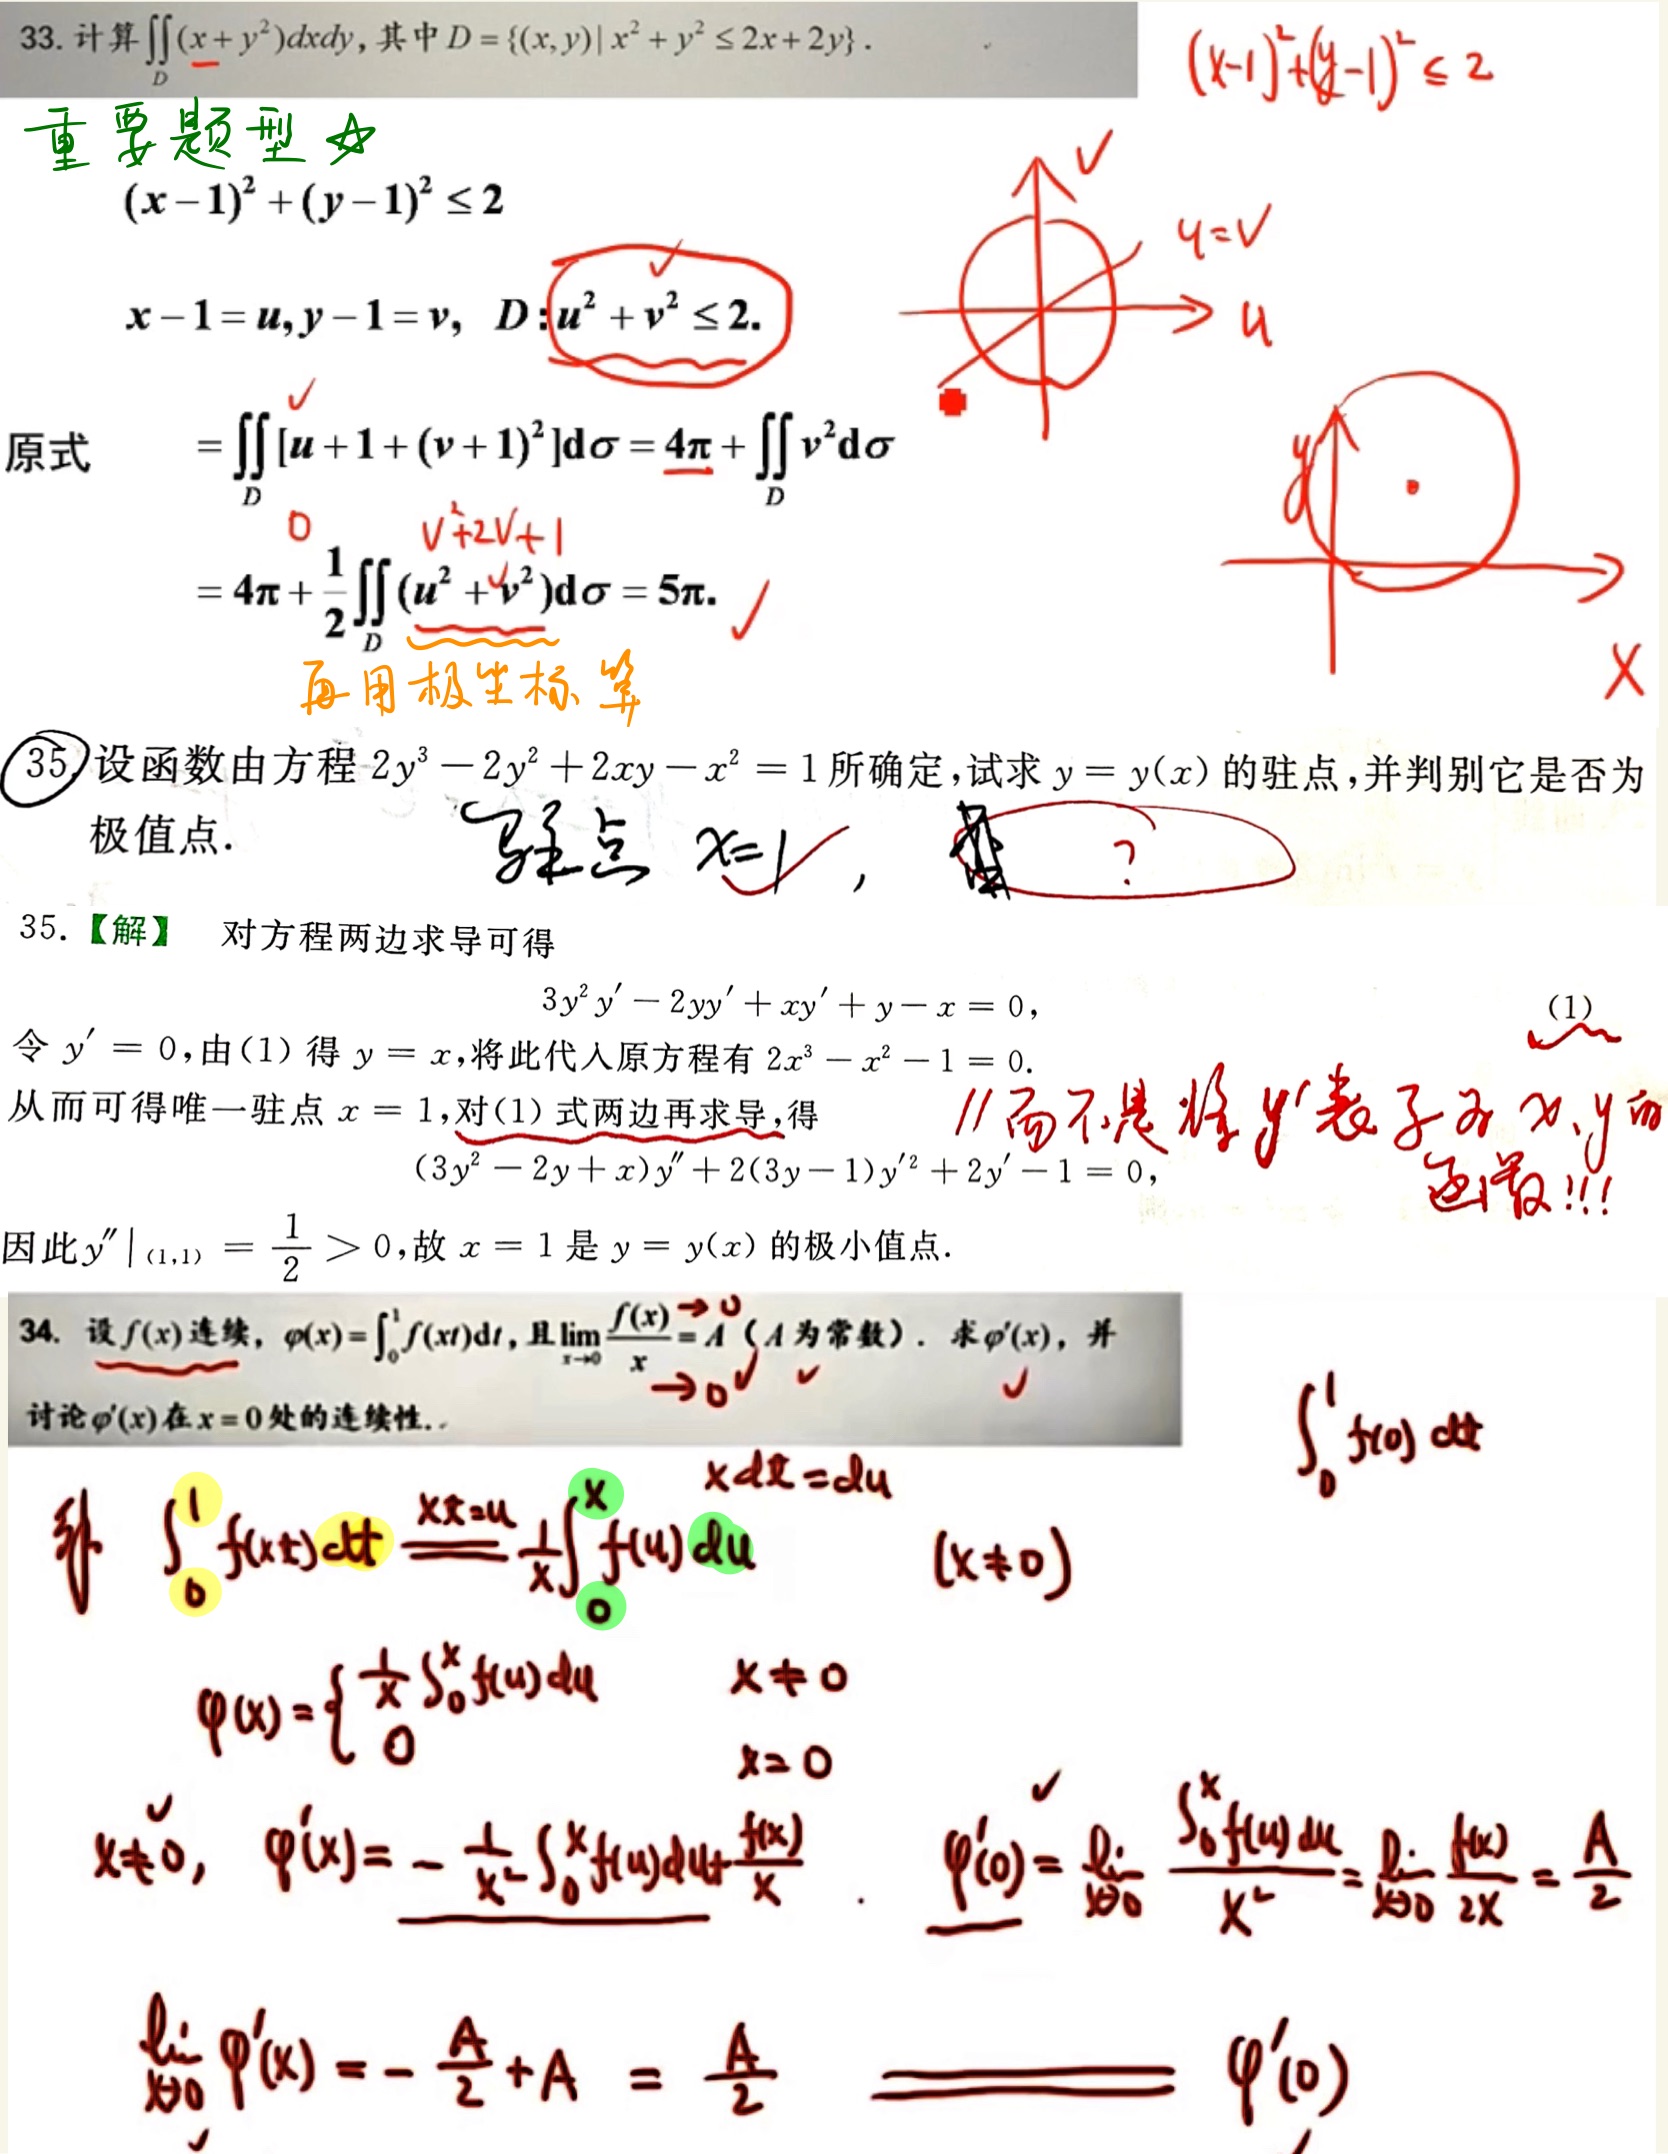 33. 计算∬_D (x + y²)dxdy, 其中 D = {(x, y) | x² + y² ≤ 2x + 2y}.
(x-1)²+(y-1)² ≤ 2
重要题型☆
(x − 1)² + (y − 1)² ≤ 2
v
u=v
x − 1 = u, y − 1 = v, D: u² + v² ≤ 2.
u
原式 = ∬_D [u + 1 + (v + 1)²]dσ = 4π + ∬_D v²dσ
y
0 v²+2v+1
= 4π + 1/2 ∬_D (u² + v²)dσ = 5π.
再用极坐标算
x
35. 设函数由方程 2y³ − 2y² + 2xy − x² = 1 所确定,试求 y = y(x) 的驻点,并判别它是否为
极值点.
驻点 x=1, ?
35.【解】 对方程两边求导可得
3y²y′ − 2yy′ + xy′ + y − x = 0, (1)
令 y′ = 0,由(1) 得 y = x,将此代入原方程有 2x³ − x² − 1 = 0.
从而可得唯一驻点 x = 1,对(1) 式两边再求导,得
//而不是将y′表示为x、y的
函数!!!
(3y² − 2y + x)y″ + 2(3y − 1)y′² + 2y′ − 1 = 0,
因此 y″|(1,1) = 1/2 > 0,故 x = 1 是 y = y(x) 的极小值点.
34. 设 f(x) 连续, φ(x) = ∫₀¹ f(xt)dt, 且 lim_{x→0} f(x)/x = A (A 为常数). 求 φ′(x), 并
→0
→0
讨论 φ′(x) 在 x = 0 处的连续性.
∫₀¹ f(0) dt
xdt = du
解 ∫₀¹ f(xt) dt xt=u = 1/x ∫₀ˣ f(u) du (x≠0)
φ(x) = { 1/x ∫₀ˣ f(u) du x≠0
0 x=0
x≠0, φ′(x) = − 1/x² ∫₀ˣ f(u) du + f(x)/x . φ′(0) = lim_{x→0} ∫₀ˣ f(u) du / x² = lim_{x→0} f(x)/2x = A/2
lim_{x→0} φ′(x) = − A/2 + A = A/2 = φ′(0)